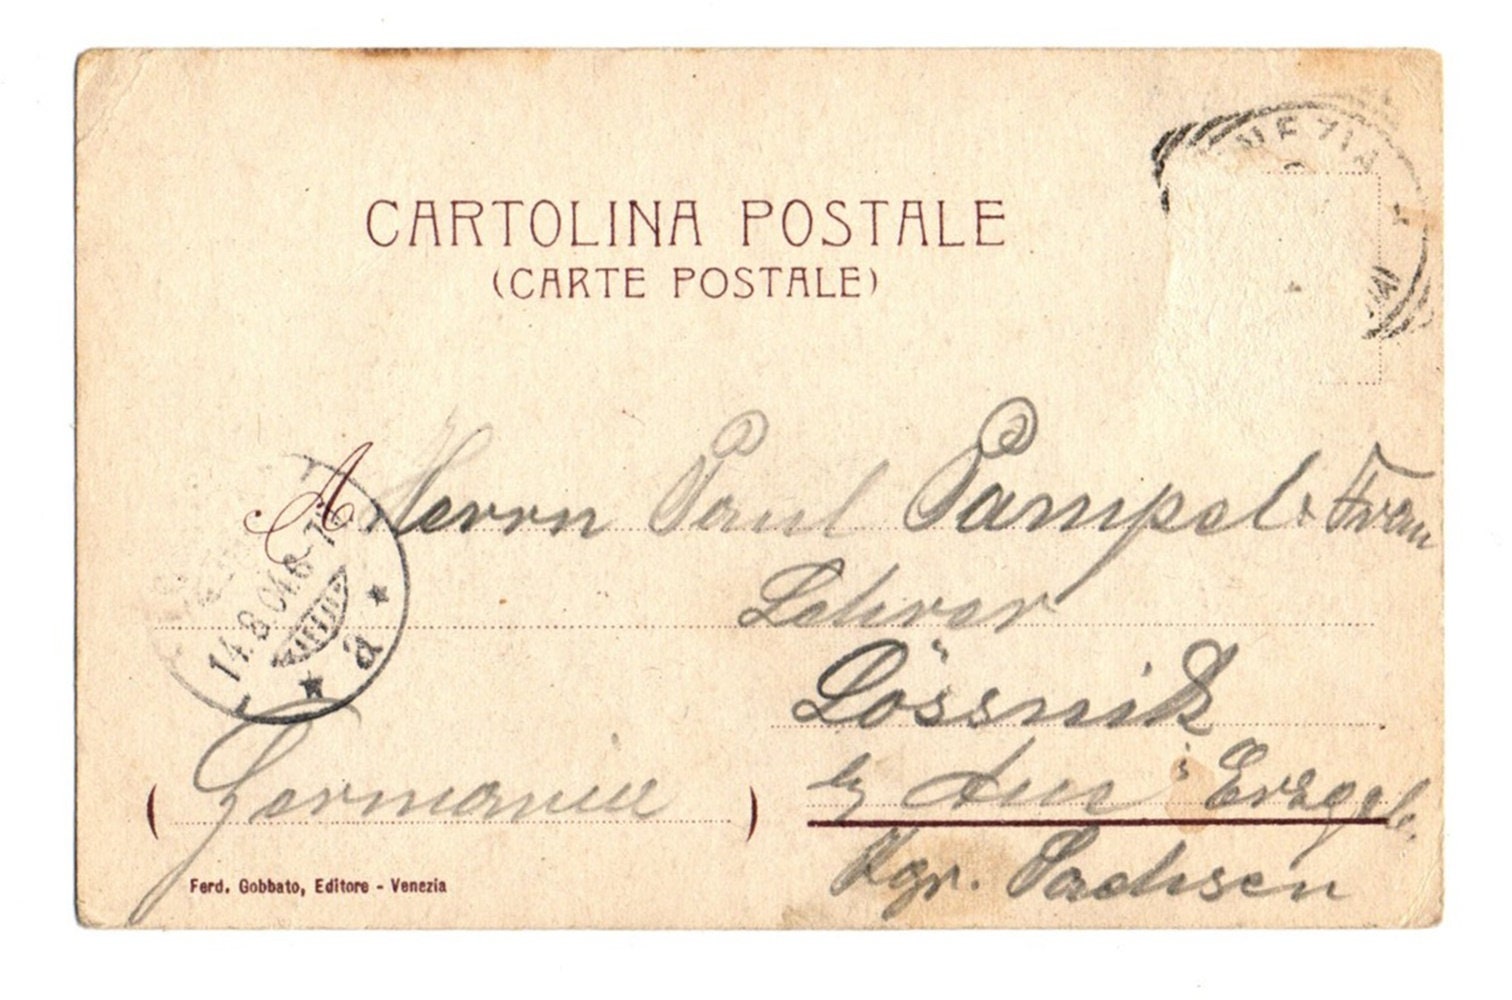 VENEZIA
CARTOLINA POSTALE
(CARTE POSTALE)
A Herrn Paul Pampel & Frau
Lehrer
Lössnitz
by Aue i Erzgeb.
Kgr. Sachsen
(Germania)
14.8.04.6-7
* a *
Ferd. Gobbato, Editore - Venezia